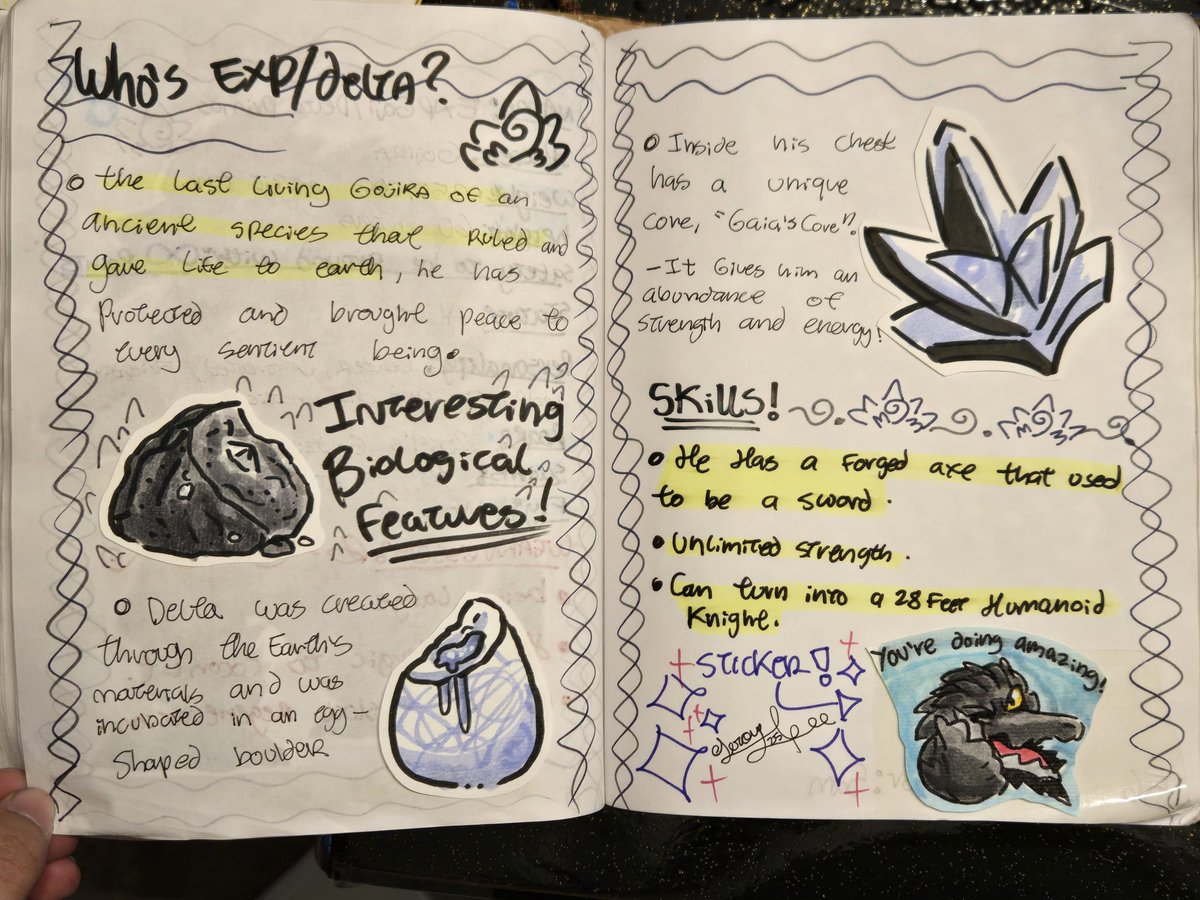 Who's EXP/Delta?
the last living Gojira of an
ancient species that ruled and
gave life to earth, he has
Protected and brought peace to
every sentient being.
Interesting
Biological
Features!
Delta was created
through the Earth's
materials and was
incubated in an egg-
shaped boulder
Inside his chest
has a unique
core, "Gaia's Core".
- It gives him an
abundance of
strength and energy!
Skills!
He has a forged axe that used
to be a sword.
Unlimited strength.
Can turn into a 28 Feet Humanoid
Knight.
STICKER!
You're doing amazing!